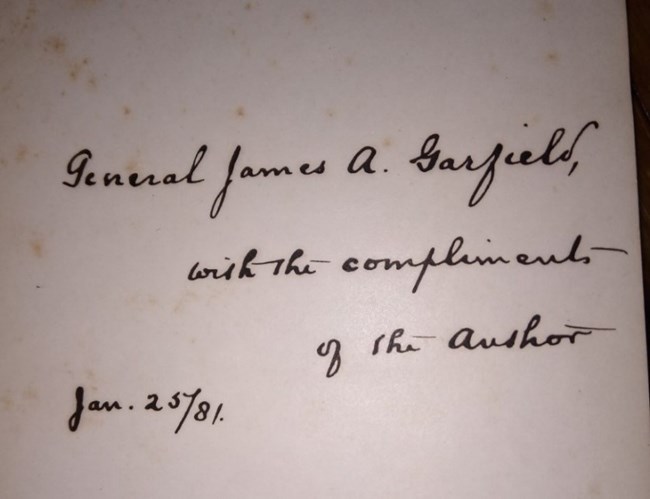 General James A. Garfield,
with the compliments
of the Author
Jan. 25/81.